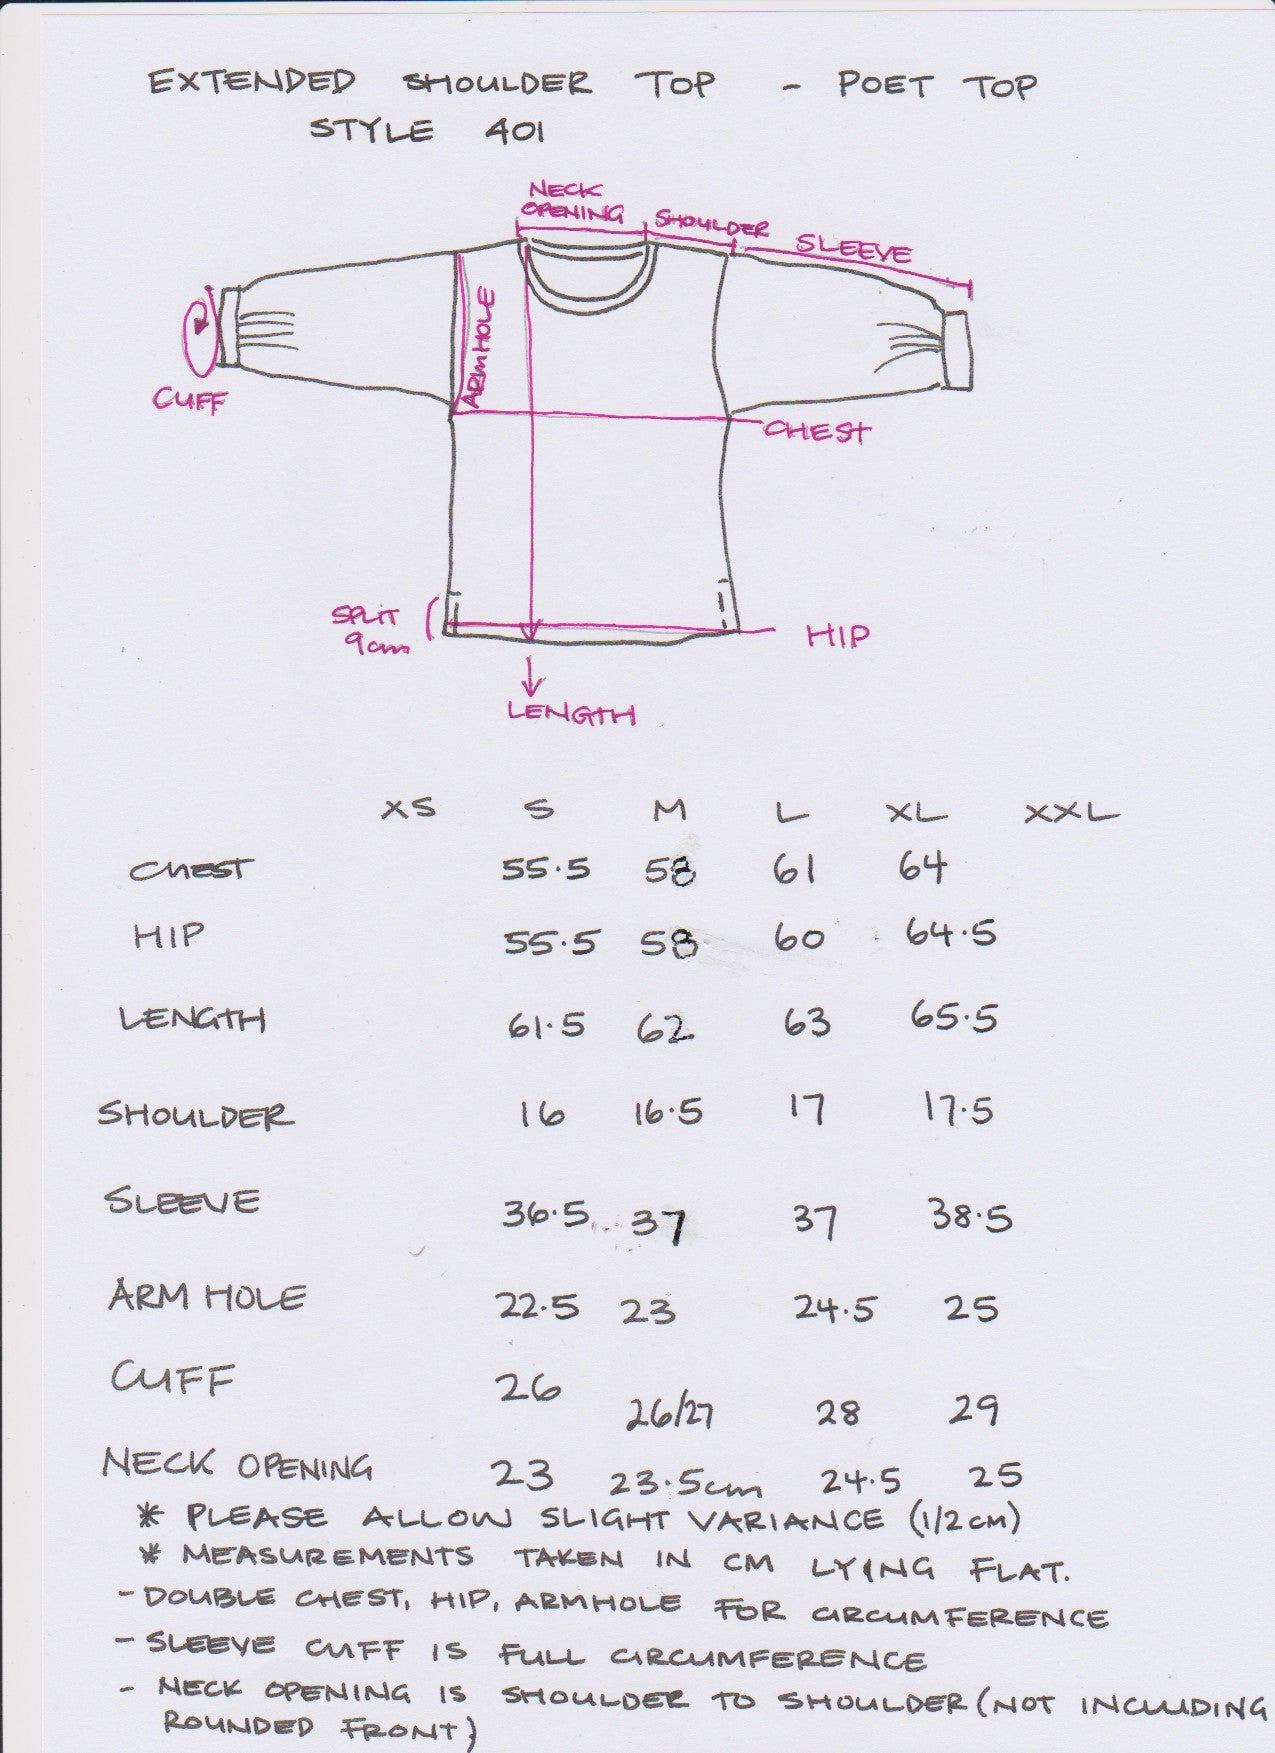 EXTENDED SHOULDER TOP - POET TOP
STYLE 401
NECK
OPENING
SHOULDER
SLEEVE
ARMHOLE
CUFF
CHEST
SPLIT
9cm
HIP
LENGTH
XS S M L XL XXL
CHEST 55.5 58 61 64
HIP 55.5 58 60 64.5
LENGTH 61.5 62 63 65.5
SHOULDER 16 16.5 17 17.5
SLEEVE 36.5 37 37 38.5
ARM HOLE 22.5 23 24.5 25
CUFF 26 26/27 28 29
NECK OPENING 23 23.5cm 24.5 25
* PLEASE ALLOW SLIGHT VARIANCE (1/2CM)
* MEASUREMENTS TAKEN IN CM LYING FLAT.
- DOUBLE CHEST, HIP, ARMHOLE FOR CIRCUMFERENCE
- SLEEVE CUFF IS FULL CIRCUMFERENCE
- NECK OPENING IS SHOULDER TO SHOULDER (NOT INCLUDING
ROUNDED FRONT)